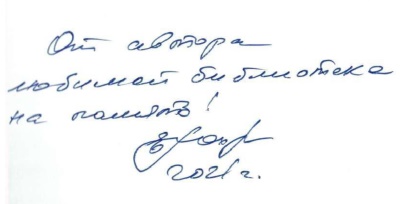 От автора
любимой библиотеке
на память!
2021 г.